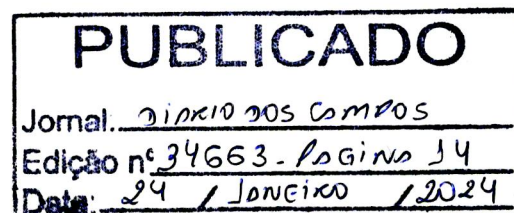 PUBLICADO
Jornal: DIARIO DOS CAMPOS
Edição nº 34663 - PAGINA 14
Data: 24 / JANEIRO / 2024